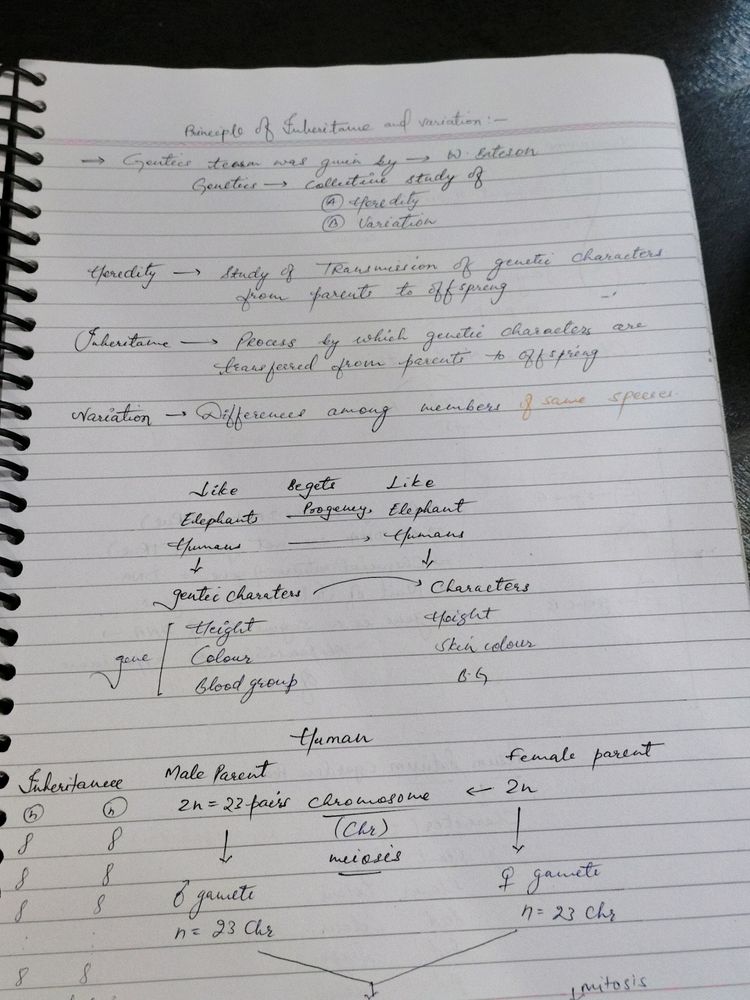 Principle of Inheritame and variation:-
→ Genetics tearm was given by → W. Bateson
Genetics → Collective study of
(A) Heredity
(B) Variation
Heredity → Study of Transmission of genetic characters
from parents to offspring
Inheritame → Process by which genetic characters are
transferred from parents to offspring
Variation → Differences among members of same species.
Like Begets Like
Elephants Progency Elephant
Humans → Humans
↓ ↓
gentic charaters Characters
gene Height Height
Colour Skin colour
Blood group B.G
Human
Inheritance Male Parent Female parent
(n) (n) 2n = 23 pairs Chromosome ← 2n
8 8 ↓ (Chr) ↓
8 8 meiosis
8 8 ♂ gamete ♀ gamete
n = 23 Chr n = 23 Chr
8 8 mitosis